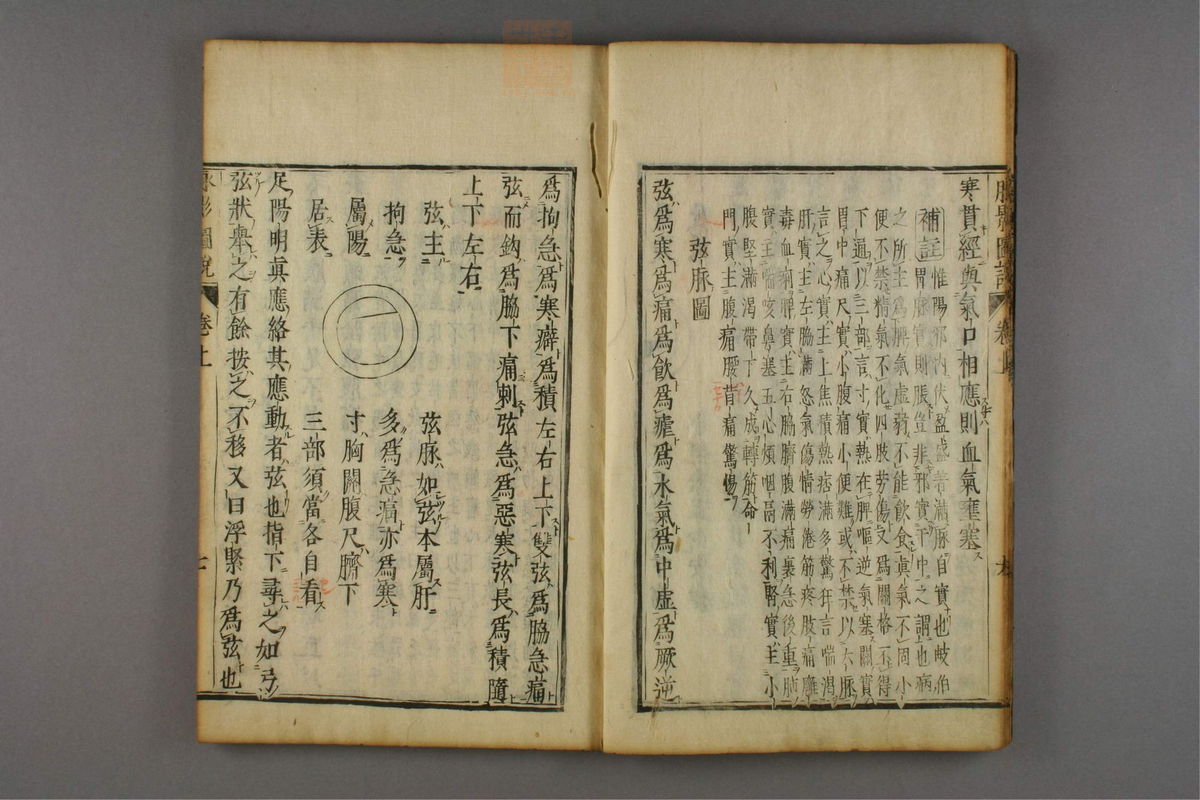 寒貫經與氣口相應則血氣壅塞
補註
惟陽邪内伏盈盛若滿脉自實也岐伯
胃脉實則脹豈非邪實干中之謂也病
之所主爲脾氣虚弱不能飲食眞氣不固小
便不禁精氣不化四肢勞傷又爲關格不得
下通以三部言寸實熱在脾嘔逆氣塞關實
胃中痛尺實小腹痛小便難或不禁以六脉
言之心實主上焦積熱痞滿多驚狂言喘渴
肝實主左脇滿怒氣傷情勞倦筋疼肢痛癰
毒血痢脾實主右脇臍腹滿痛裏急後重肺
實主喘咳鼻塞五心煩咽鬲不利腎實主小
腹堅滿渴帶下久成轉筋命
門實主腹痛腰背痛驚惕
弦脉圖
弦爲寒爲痛爲飲爲瘧爲水氣爲中虚爲厥逆
爲拘急爲寒癖爲積左右上下雙弦爲脇急痛
弦而鈎爲脇下痛刺弦急爲惡寒弦長爲積隨
上下左右
弦主
拘急
屬陽
居表
弦脉如弦本屬肝
多爲急痛亦爲寒
寸胸關腹尺臍下
三部須當各自看
足陽明眞應絡其應動者弦也指下尋之如弓
弦狀舉之有餘按之不移又曰浮緊乃爲弦也
卷上